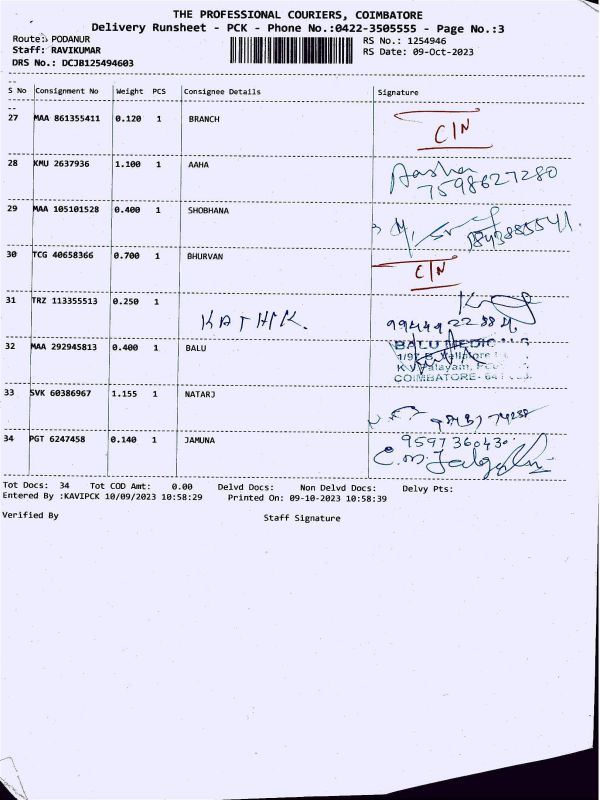 THE PROFESSIONAL COURIERS, COIMBATORE
Delivery Runsheet - PCK - Phone No.:0422-3505555 - Page No.:3
Route: PODANUR
RS No.: 1254946
Staff: RAVIKUMAR
RS Date: 09-Oct-2023
DRS No.: DCJB125494603
S No Consignment No Weight PCS Consignee Details Signature
27 MAA 861355411 0.120 1 BRANCH C/N
28 KMU 2637936 1.100 1 AAHA
7598627280
29 MAA 105101528 0.400 1 SHOBHANA
30 TCG 40658366 0.700 1 BHURVAN C/N
31 TRZ 113355513 0.250 1
KATHIK.
32 MAA 292945813 0.400 1 BALU
BALU MEDICALS
COIMBATORE - 641
33 SVK 60386967 1.155 1 NATARJ
34 PGT 6247458 0.140 1 JAMUNA 9597360430
Tot Docs: 34 Tot COD Amt: 0.00 Delvd Docs: Non Delvd Docs: Delvy Pts:
Entered By :KAVIPCK 10/09/2023 10:58:29 Printed On: 09-10-2023 10:58:39
Verified By Staff Signature